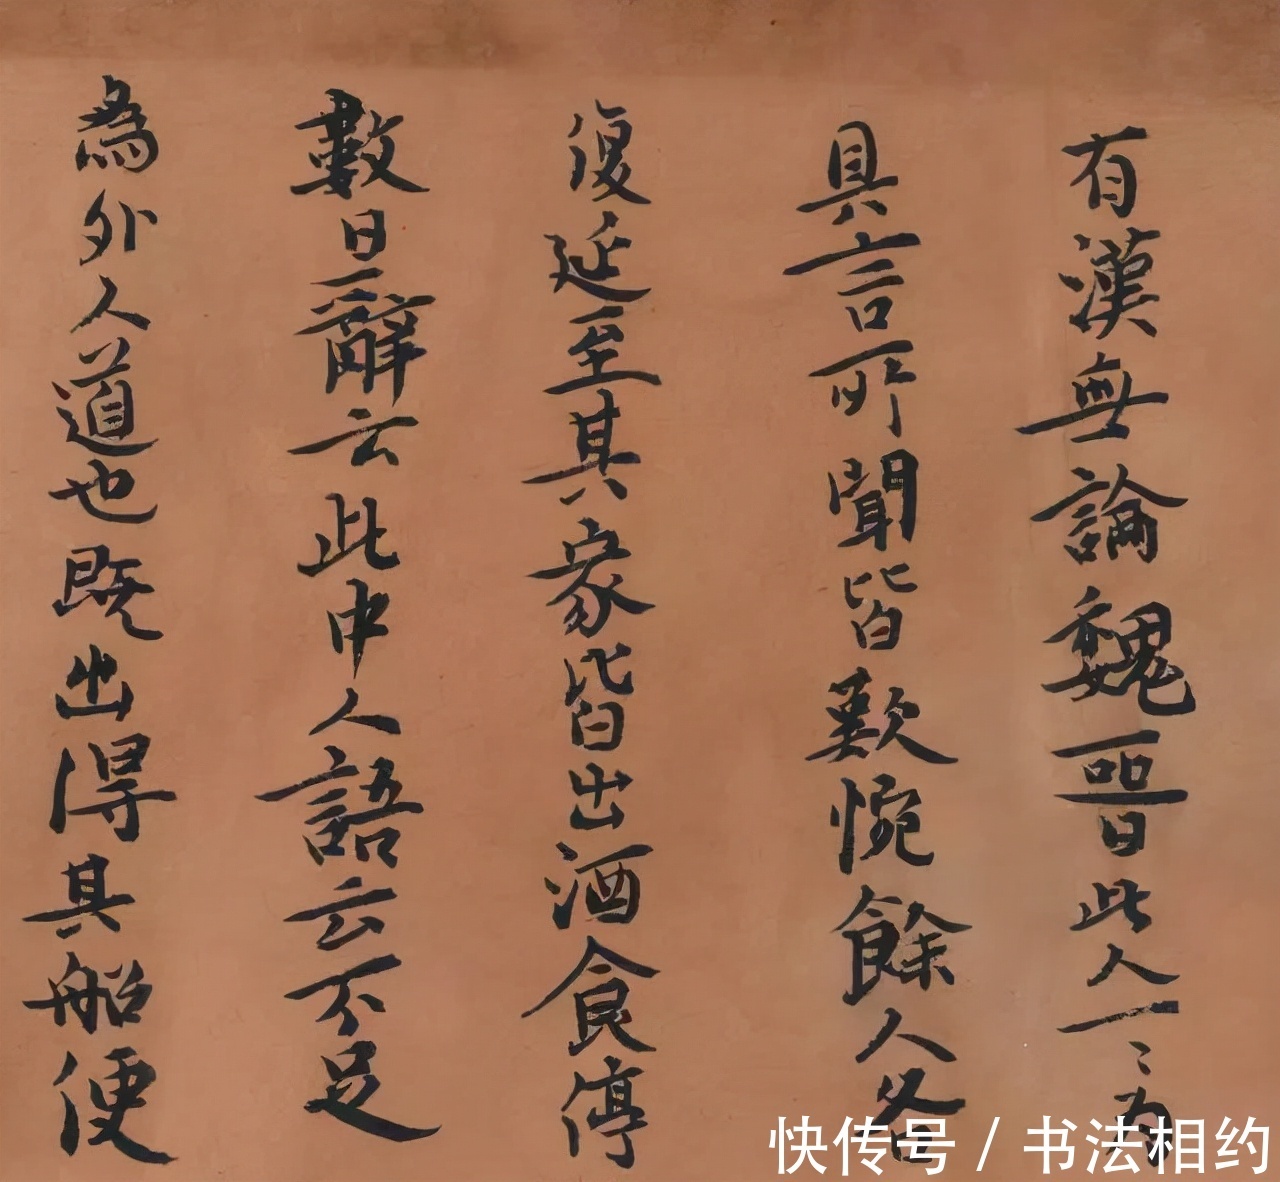 有漢無論魏晉此人一〻為
具言所聞皆歎惋餘人各
復延至其家皆出酒食停
數日辭云此中人語云不足
為外人道也既出得其船便
快传号 / 书法相约